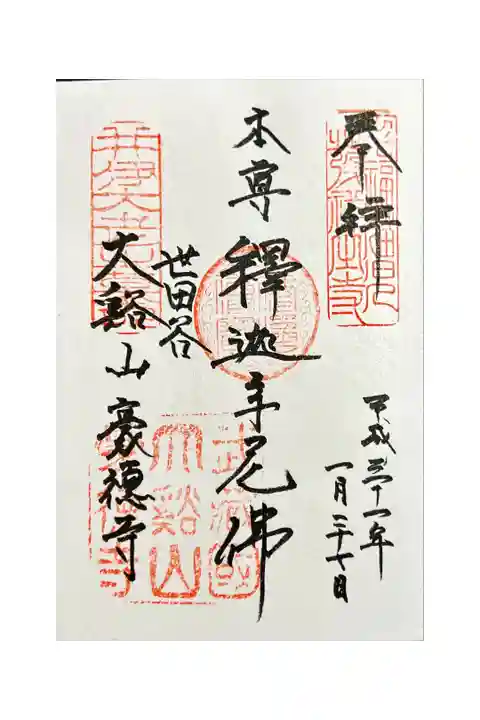 奉拝
平成三十一年
一月二十七日
本尊 釋迦牟尼佛
世田谷
大谿山豪徳寺
武蔵國
大谿山